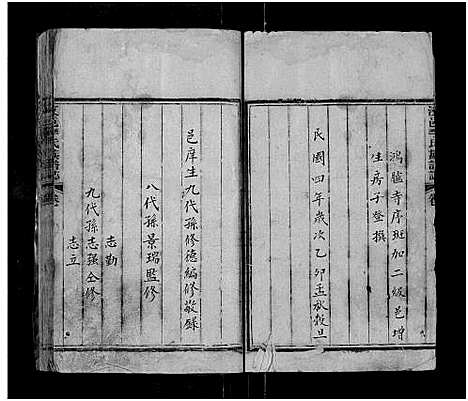 鴻臚寺序班加二級邑增
生房子登撰
民國四年歲次乙卯孟秋穀旦
邑庠生九代孫修德編修敬錄
八代孫景瑞監修
志勤
九代孫志强仝修
志立